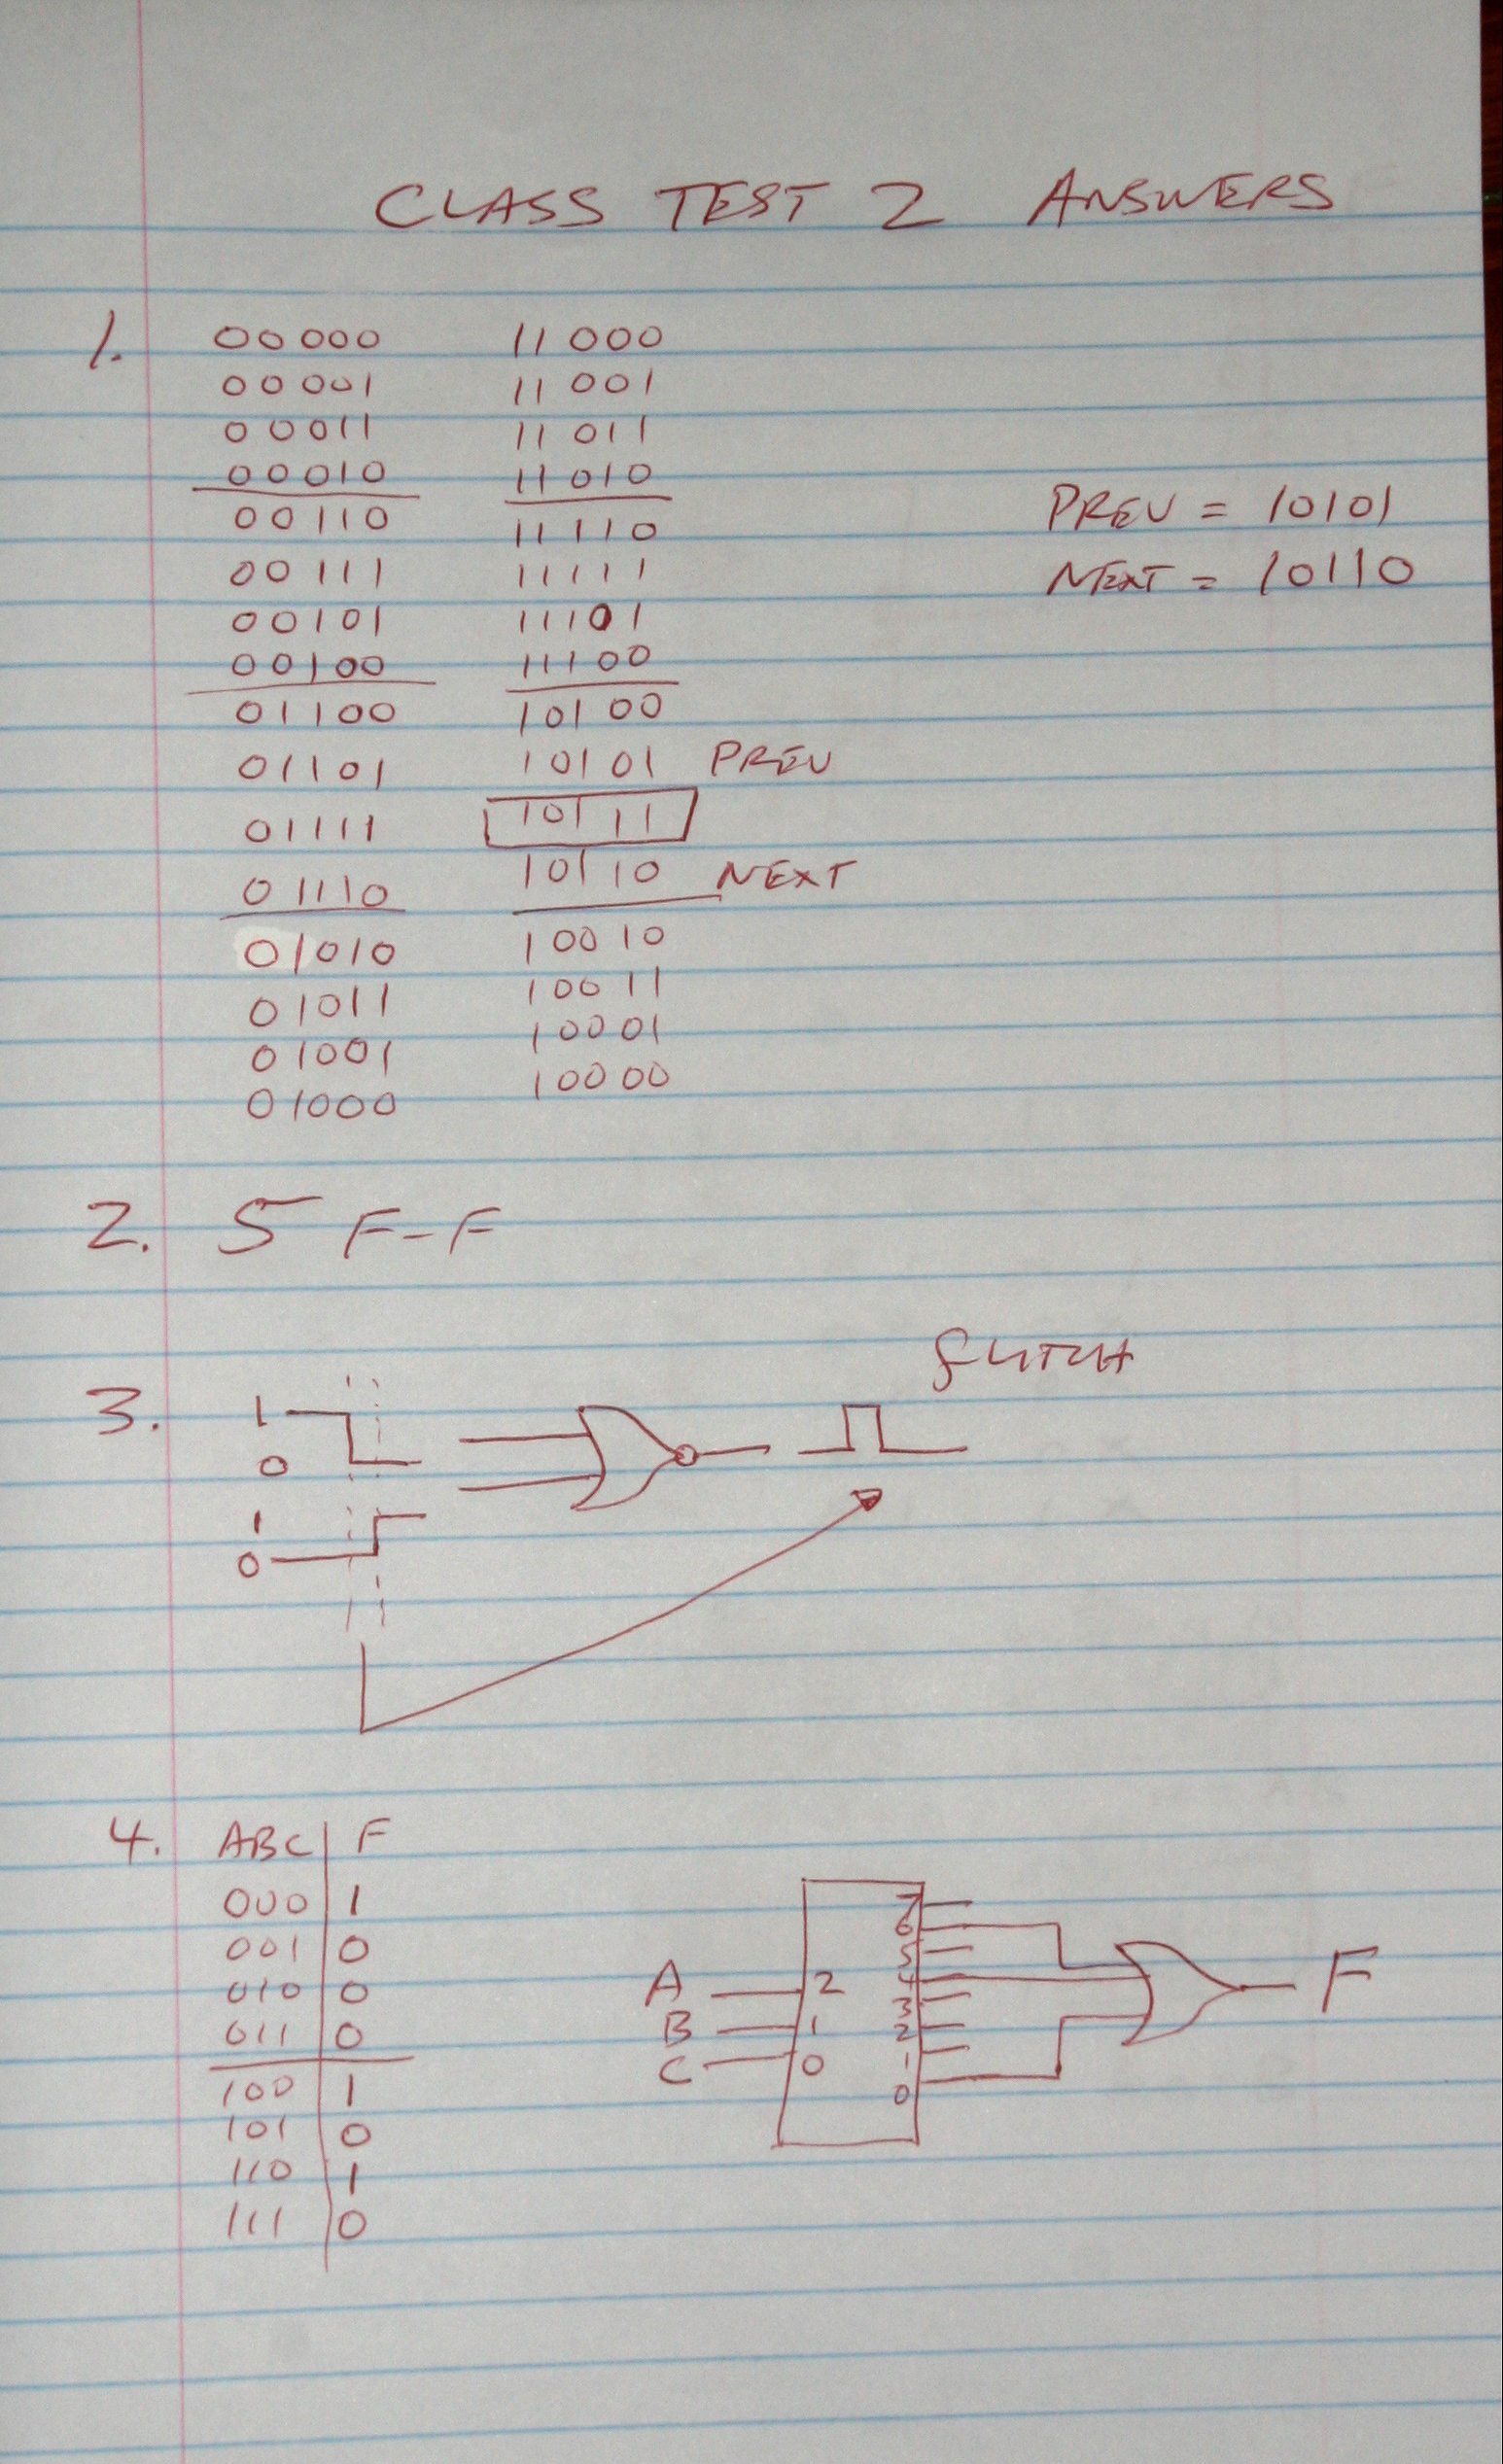 CLASS TEST 2 ANSWERS
1. 00000 11000
00001 11001
00011 11011
00010 11010
00110 11110
00111 11111
00101 11101
00100 11100
01100 10100
01101 10101 PREV
01111 10111
01110 10110 NEXT
01010 10010
01011 10011
01001 10001
01000 10000
PREV = 10101
NEXT = 10110
2. 5 F-F
3. 1
0
1
0
GLITCH
4. ABC F
000 1
001 0
010 0
011 0
100 1
101 0
110 1
111 0
A 2
B 1
C 0
7
6
5
4
3
2
1
0
F